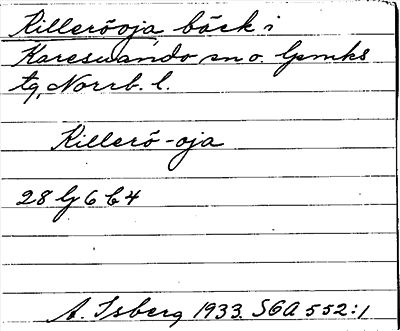 Killeröoja bäck i
Karesuando sn o. lpmks
tg, Norrb. l.
Killerö-oja
28 G 6 b 4
A. Isberg 1933. SGA 552:1